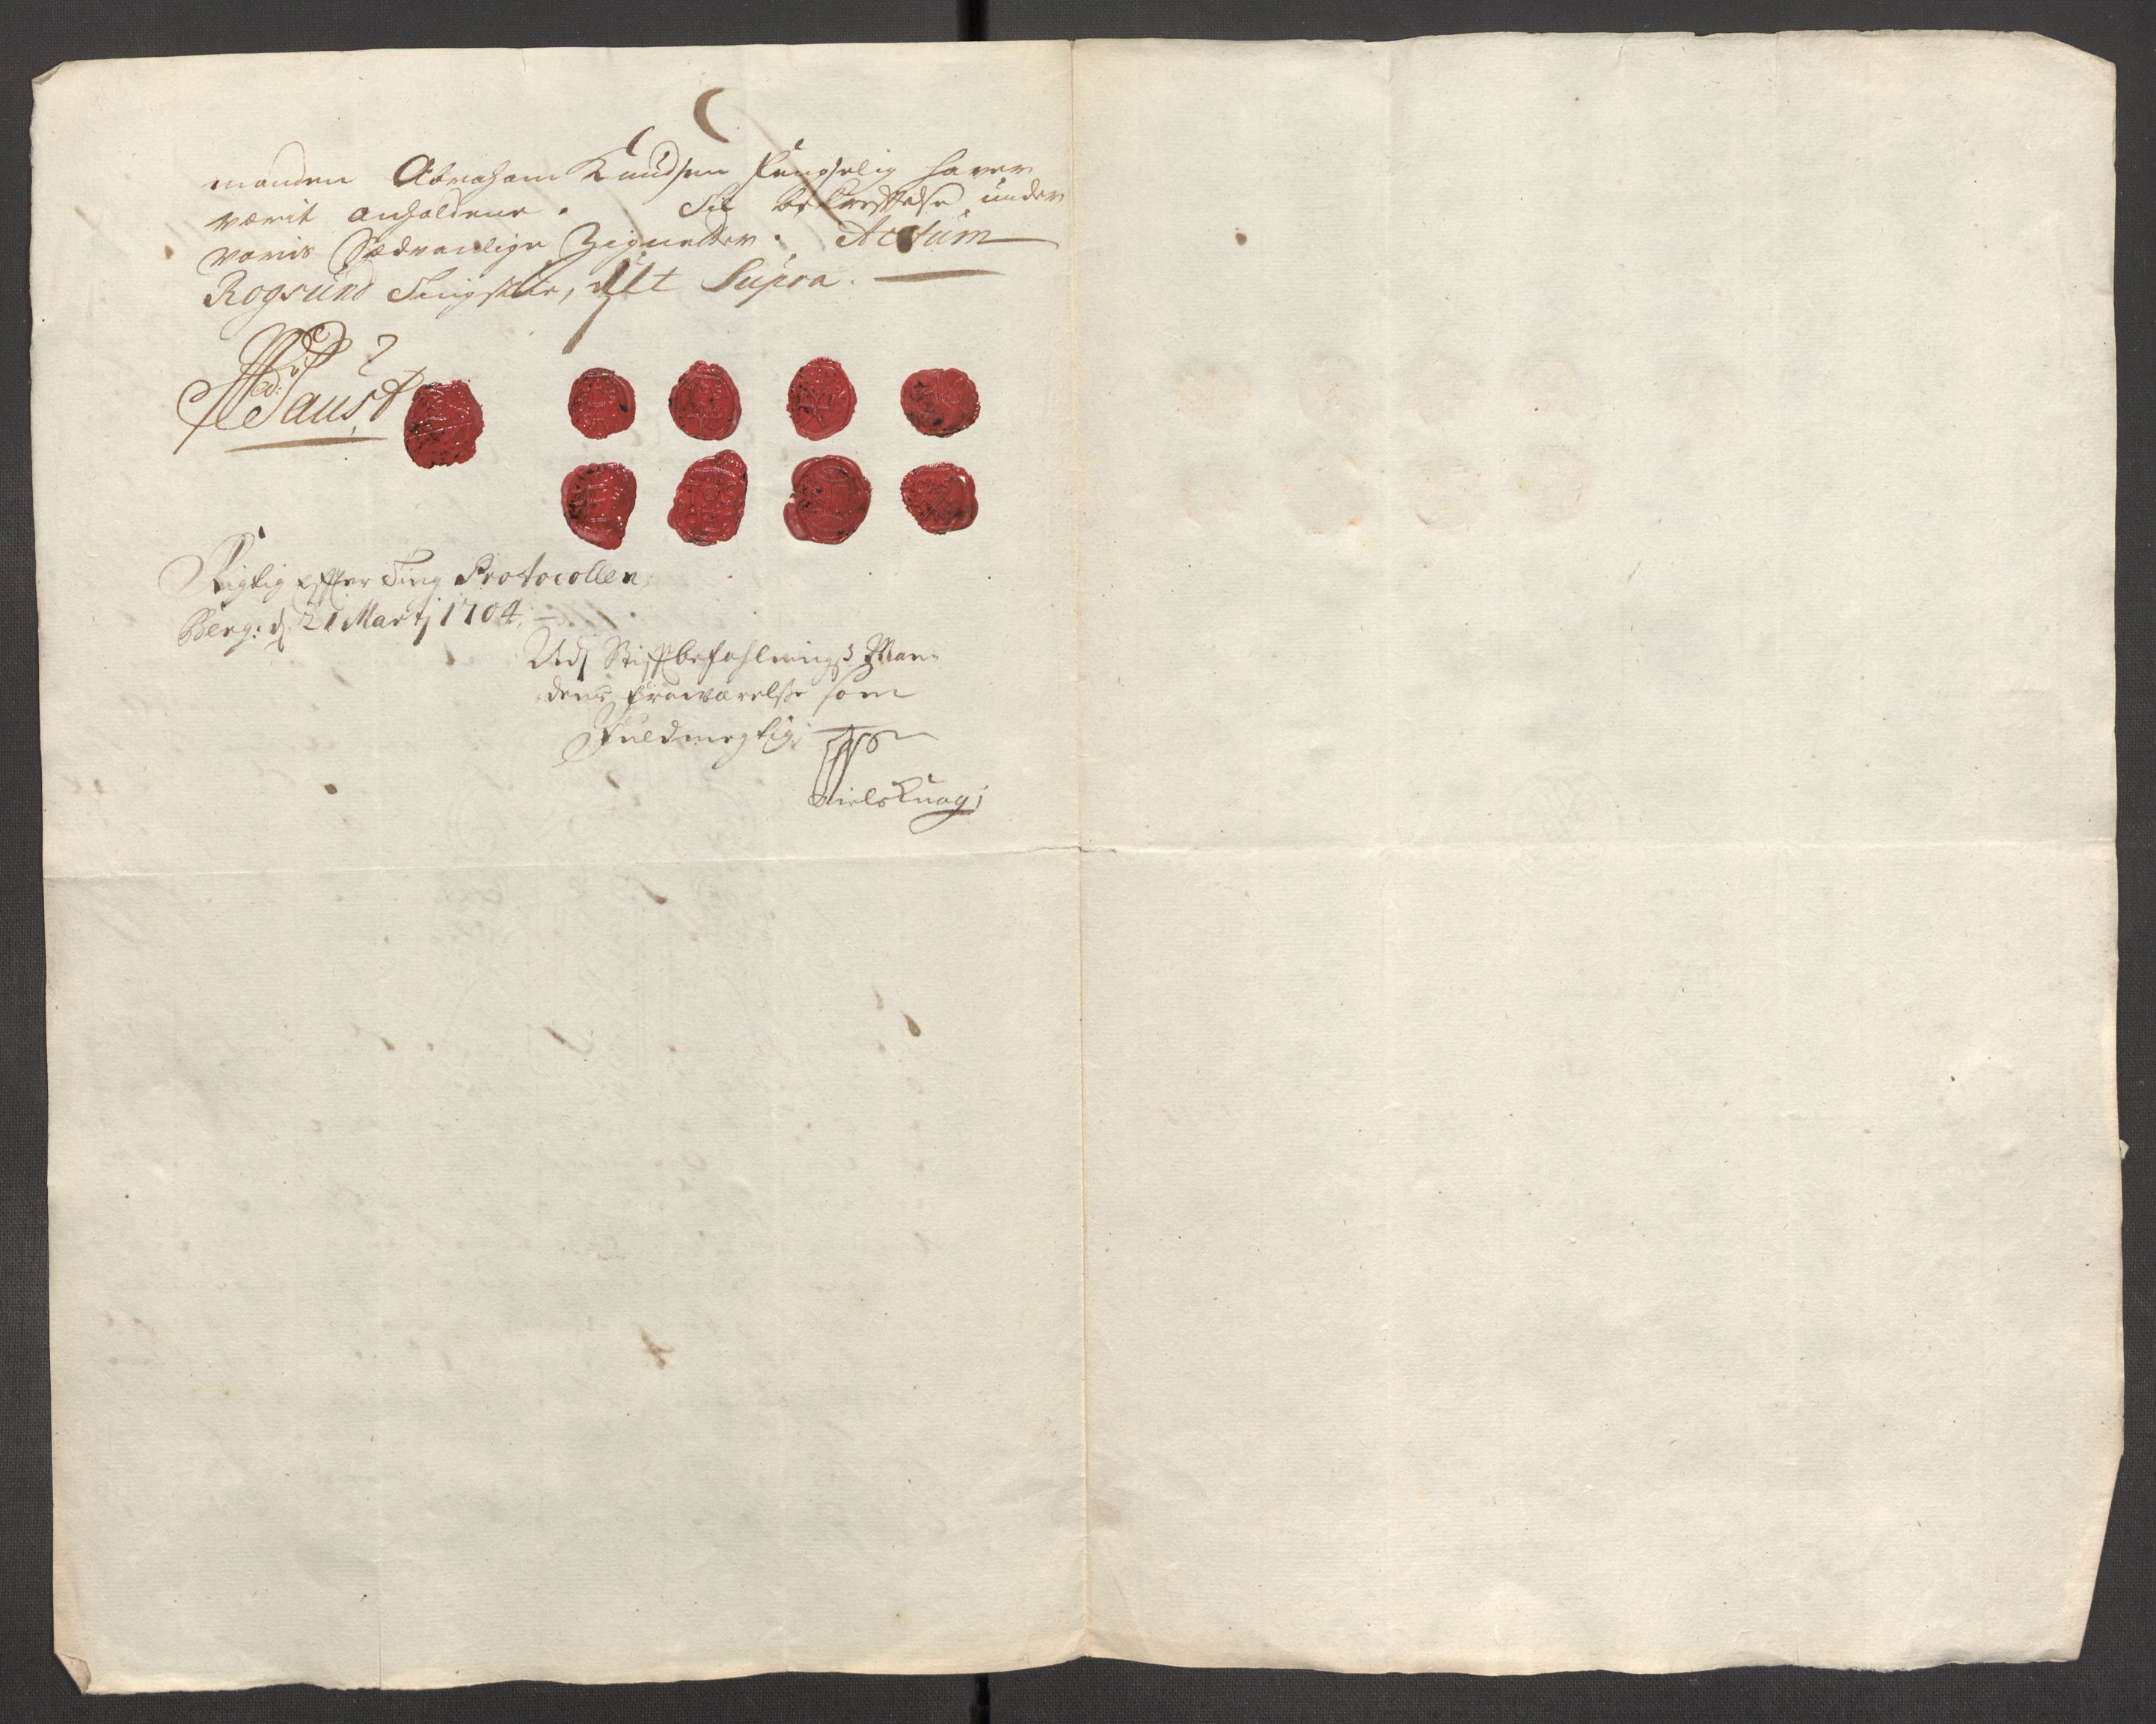 manden Abraham Knudsen fengselig haver
værit anholdene. Til bekreftelse under
voris Sædvanlige Zignetter. Actum
Rogsund Tingstue, Ut Supra.
Faust
Rigtig efter Ting Protocollen
Berg: d. 21 Martj 1704.
Udj Stiftbefahlnings Man-
dens fraværelse som
Fuldmegtig
Niels Knag